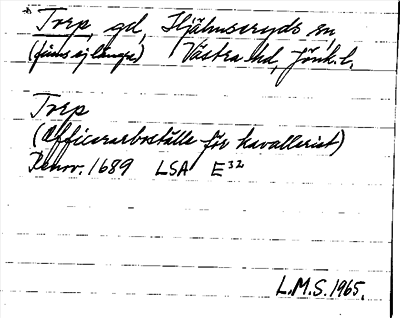 Torp, gd, Hjälmseryds sn,
(finns ej längre) Västra hd, Jönk. l.
Torp
(Officersboställe för kavallerist)
Renov. 1689 LSA E 32
L.M.S. 1965.